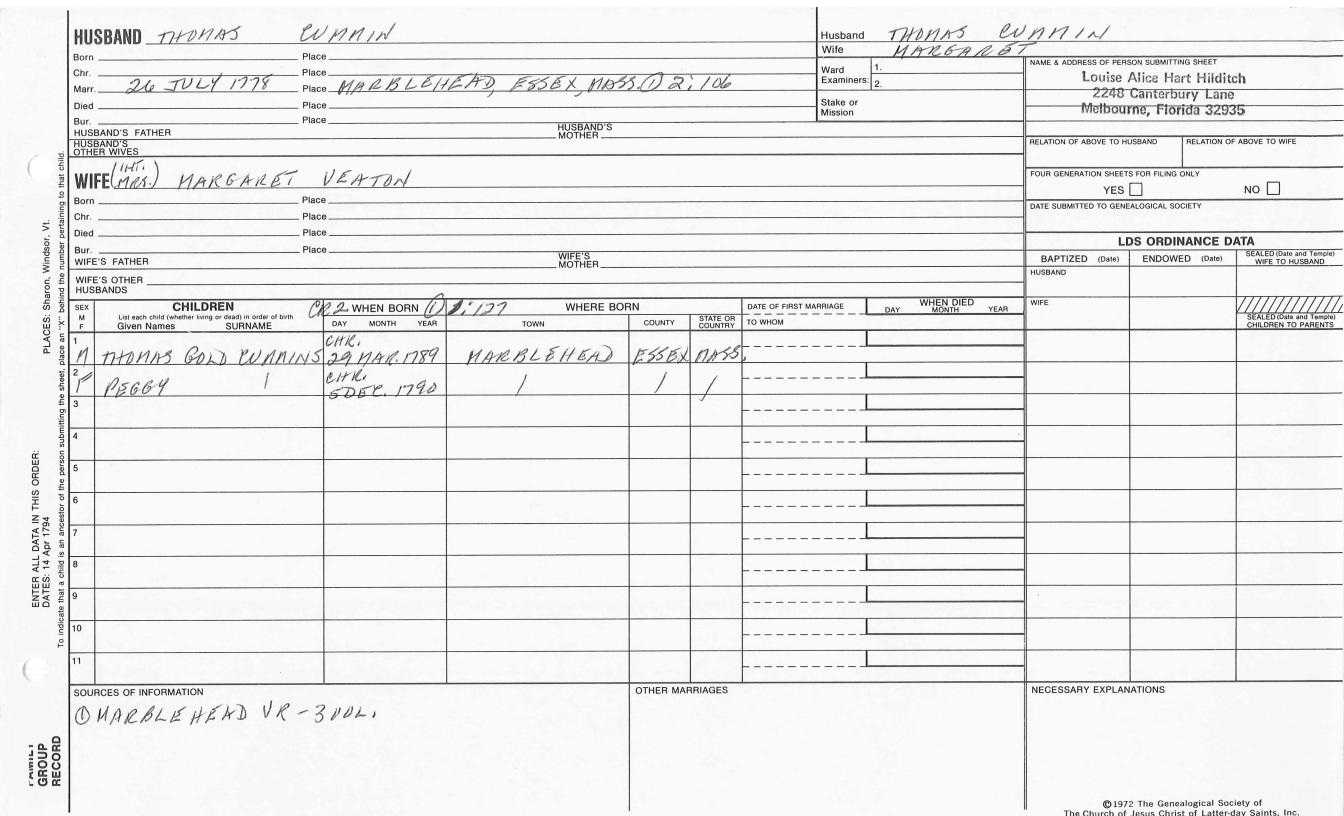 HUSBAND THOMAS CUMMIN
Born Place
Chr. Place
Marr. 26 JULY 1778 Place MARBLEHEAD, ESSEX, MASS. ① 2:106
Died Place
Bur. Place
HUSBAND'S FATHER HUSBAND'S MOTHER
HUSBAND'S OTHER WIVES
Husband THOMAS CUMMIN
Wife MARGARET
Ward Examiners: 1.
2.
Stake or Mission
NAME & ADDRESS OF PERSON SUBMITTING SHEET
Louise Alice Hart Hilditch
2248 Canterbury Lane
Melbourne, Florida 32935
RELATION OF ABOVE TO HUSBAND RELATION OF ABOVE TO WIFE
FOUR GENERATION SHEETS FOR FILING ONLY
YES NO
DATE SUBMITTED TO GENEALOGICAL SOCIETY
WIFE (INT. MRS.) MARGARET VEATON
Born Place
Chr. Place
Died Place
Bur. Place
WIFE'S FATHER WIFE'S MOTHER
WIFE'S OTHER HUSBANDS
LDS ORDINANCE DATA
BAPTIZED (Date) ENDOWED (Date) SEALED (Date and Temple) WIFE TO HUSBAND
HUSBAND
WIFE
SEALED (Date and Temple) CHILDREN TO PARENTS
SEX M F
CHILDREN
List each child (whether living or dead) in order of birth
Given Names SURNAME
CR2 WHEN BORN ① 1:127
DAY MONTH YEAR
WHERE BORN
TOWN COUNTY STATE OR COUNTRY
DATE OF FIRST MARRIAGE
TO WHOM
WHEN DIED
DAY MONTH YEAR
1 M THOMAS GOLD CUMMINS CHR. 29 MAR. 1789 MARBLEHEAD ESSEX MASS.
2 F PEGGY / CHR. 5 DEC. 1790 / / /
3
4
5
6
7
8
9
10
11
SOURCES OF INFORMATION
① MARBLEHEAD VR - 3 VOL.
OTHER MARRIAGES
NECESSARY EXPLANATIONS
©1972 The Genealogical Society of
The Church of Jesus Christ of Latter-day Saints, Inc.
PLACES: Sharon, Windsor, Vt.
ENTER ALL DATA IN THIS ORDER:
DATES: 14 Apr 1794
To indicate that a child is an ancestor of the person submitting the sheet, place an "X" behind the number pertaining to that child.
FAMILY GROUP RECORD